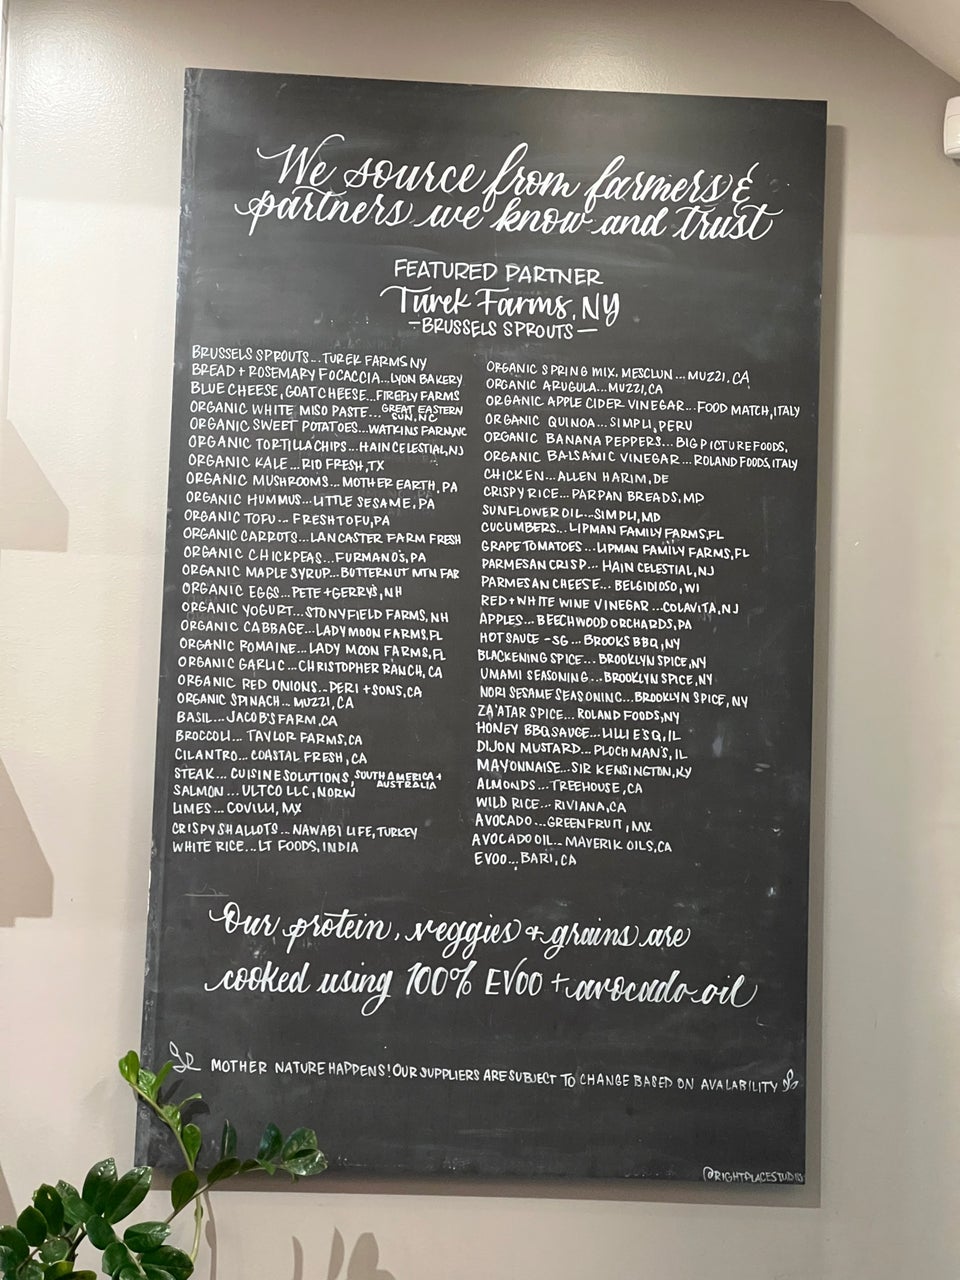 We source from farmers &
partners we know and trust
FEATURED PARTNER
Turek Farms, NY
-BRUSSELS SPROUTS-
BRUSSELS SPROUTS...TUREK FARMS NY
BREAD + ROSEMARY FOCACCIA...LYON BAKERY
BLUE CHEESE, GOAT CHEESE...FIREFLY FARMS
ORGANIC WHITE MISO PASTE...GREAT EASTERN SUN, NC
ORGANIC SWEET POTATOES...WATKINS FARM, NC
ORGANIC TORTILLA CHIPS...HAIN CELESTIAL, NJ
ORGANIC KALE...RIO FRESH, TX
ORGANIC MUSHROOMS...MOTHER EARTH, PA
ORGANIC HUMMUS...LITTLE SESAME, PA
ORGANIC TOFU...FRESH TOFU, PA
ORGANIC CARROTS...LANCASTER FARM FRESH
ORGANIC CHICKPEAS...FURMANO'S, PA
ORGANIC MAPLE SYRUP...BUTTERNUT MTN FAR
ORGANIC EGGS...PETE + GERRY'S, NH
ORGANIC YOGURT...STONYFIELD FARMS, NH
ORGANIC CABBAGE...LADY MOON FARMS, FL
ORGANIC ROMAINE...LADY MOON FARMS, FL
ORGANIC GARLIC...CHRISTOPHER RANCH, CA
ORGANIC RED ONIONS...PERI + SONS, CA
ORGANIC SPINACH...MUZZI, CA
BASIL...JACOB'S FARM, CA
BROCCOLI...TAYLOR FARMS, CA
CILANTRO...COASTAL FRESH, CA
STEAK...CUISINE SOLUTIONS, SOUTH AMERICA + AUSTRALIA
SALMON...ULTCO LLC, NORW
LIMES...COVILLI, MX
CRISPY SHALLOTS...NAWABI LIFE, TURKEY
WHITE RICE...LT FOODS, INDIA
ORGANIC SPRING MIX, MESCLUN...MUZZI, CA
ORGANIC ARUGULA...MUZZI, CA
ORGANIC APPLE CIDER VINEGAR...FOOD MATCH, ITALY
ORGANIC QUINOA...SIMPLI, PERU
ORGANIC BANANA PEPPERS...BIG PICTURE FOODS,
ORGANIC BALSAMIC VINEGAR...ROLAND FOODS, ITALY
CHICKEN...ALLEN HARIM, DE
CRISPY RICE...PARPAN BREADS, MD
SUNFLOWER OIL...SIMPLI, MD
CUCUMBERS...LIPMAN FAMILY FARMS, FL
GRAPE TOMATOES...LIPMAN FAMILY FARMS, FL
PARMESAN CRISP...HAIN CELESTIAL, NJ
PARMESAN CHEESE...BELGIOIOSO, WI
RED + WHITE WINE VINEGAR...COLAVITA, NJ
APPLES...BEECHWOOD ORCHARDS, PA
HOT SAUCE - SG...BROOKS BBQ, NY
BLACKENING SPICE...BROOKLYN SPICE, NY
UMAMI SEASONING...BROOKLYN SPICE, NY
NORI SESAME SEASONING...BROOKLYN SPICE, NY
ZA'ATAR SPICE...ROLAND FOODS, NY
HONEY BBQ SAUCE...LILLIE'S Q, IL
DIJON MUSTARD...PLOCHMAN'S, IL
MAYONNAISE...SIR KENSINGTON, KY
ALMONDS...TREEHOUSE, CA
WILD RICE...RIVIANA, CA
AVOCADO...GREENFRUIT, MX
AVOCADO OIL...MAVERIK OILS, CA
EVOO...BARI, CA
Our protein, veggies + grains are
cooked using 100% EVOO + avocado oil
MOTHER NATURE HAPPENS! OUR SUPPLIERS ARE SUBJECT TO CHANGE BASED ON AVALABILITY
@RIGHTPLACESTUDIO